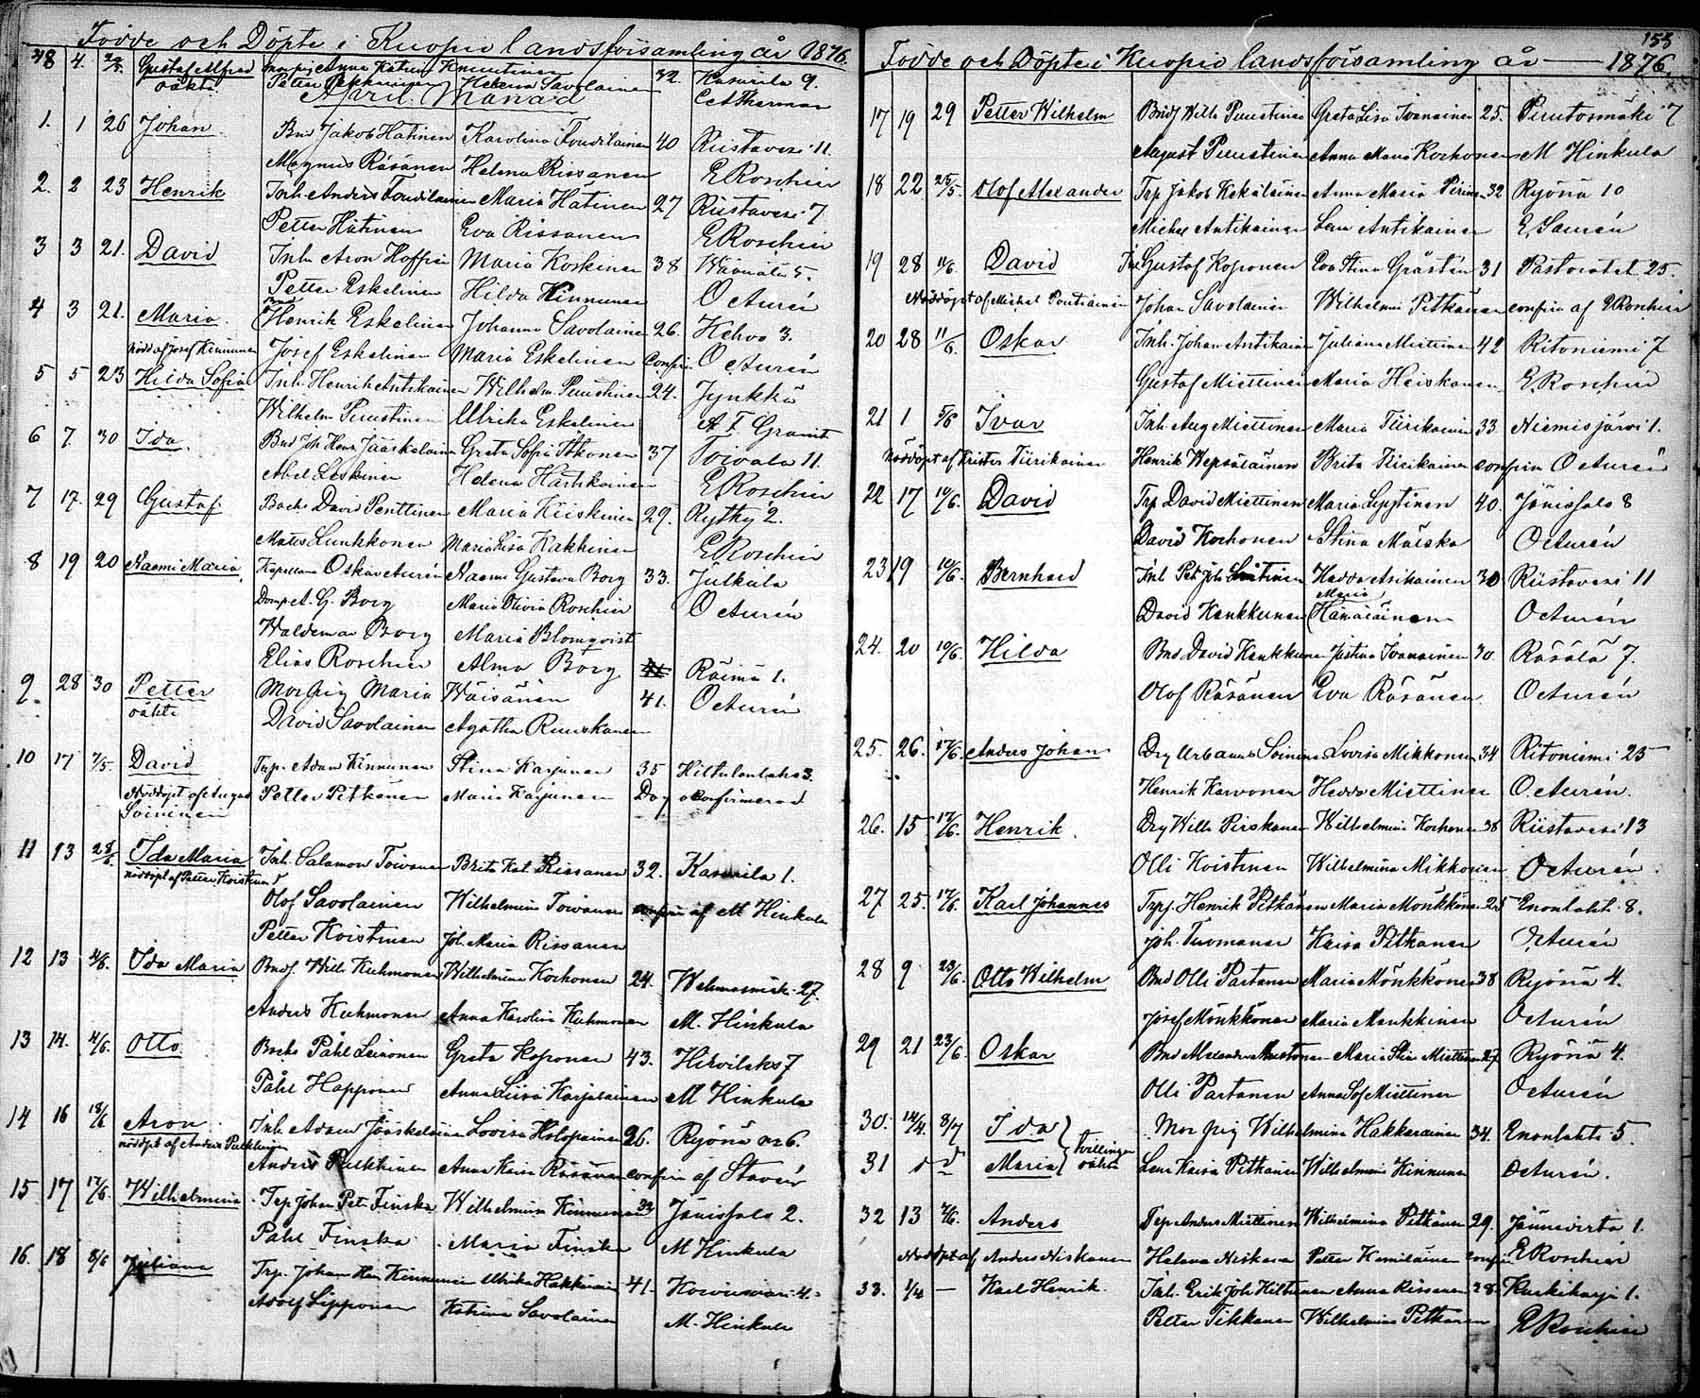 Födde och Döpte i Kuopio landsförsamling år 1876.
48 4. Gustaf Alfred Mospig Anna Katrin Knuutinen 32. Kasurila 9.
oäkta Petter Pekkarinen Helena Savolainen C A Therman
April Månad
1. 1 26 Johan Bnd Jakob Hatinen Karolina Toudilainen 40 Riistavesi 11.
Magnus Räsänen Helena Rissanen E Roschier
2. 2 23 Henrik Inh. Anders Toudilainen Maria Hatinen 27 Riistavesi 7
Petter Hatinen Eva Rissanen E Roschier
3 3 21. David Inh Aron Hoffrén Maria Koskinen 38 5.
Petter Eskelinen Hilda Kinnunen O Aurén
4 3 21. Maria Bnd Henrik Eskelinen Johanna Savolainen 26. Kehvo 3.
nödd af Josef Kinnunen Josef Eskelinen Maria Eskelinen Confir O Aurén
5 5 23 Hilda Sofia Inh. Henrik Antikainen Wilhelm. Puustinen 24. Jynkkä
Wilhelm Puustinen Ulrika Eskelinen A F Granit
6 7. 30 Ida. Bnd Joh Henr Jääskeläinen Greta Sofia Itkonen 37 Toivala 11.
Abel Leskinen Helena E Roschier
7 17. 29 Gustaf Backs David Penttinen Maria Kiiskinen 29. Rytky 2.
Matts Lunkkonen Maria Lisa Kakkinen E Roschier
8 19 20 Naemi Maria, Kapellan Oskar Aurén Naemi Gustava Borg 33. Julkula
A. G. Borg Maria Olivia Roschier O Aurén
Waldemar Borg Maria Blomqvist
Elias Roschier Alma Borg Räimä 1.
9. 28 30 Petter Mospig Maria Wäisänen 41. O Aurén
oäkta David Savolainen Agatha Ruuskanen
10 17 7/5. David Torp. Adam Kinnunen Stina Karjunen 35 Hiltulanlahti 3.
Nöddöpt af August Petter Pitkänen Maria Karjunen Dop o Confirmerad
Soininen
11 13 28/5. Ida Maria Inh. Salamon Toivanen Brita Kat. Rissanen 32. Kasurila 1.
nöddöpt af Petter Koistinen
Olof Savolainen Wilhelmina Toivanen confir af M Hinkula
Petter Koistinen Joh. Maria Rissanen
12 13 4/6. Ida Maria Bndf. Wilh Kuhmonen Wilhelmina Korhonen 24. Wehmasmäki 27.
Anders Kuhmonen Anna Karolina Kuhmonen M. Hinkula
13 14. 4/6. Otto Backs Påhl Leinonen Greta Koponen 43. Hirvilaks 7
Påhl Happonen Anna Liisa Karjalainen M Hinkula
14 16 18/6 Aron Inh. Adam Jääskeläinen Lovisa Holopainen 26. Ryönä No 6.
nöddöpt af Anders Pulkkinen
Anders Pulkkinen Anna Kaisa Räsänen confir af Stavén
15 17 17/6. Wilhelmina Torp Johan Pet. Finska Wilhelmina Kinnunen 33 Jänissalo 2.
Påhl Finska Maria Finska M Hinkula
16. 18 8/6 Juliana Trp. Johan Hen Kinnunen Ulrika Hakkarainen 41. Koivusaari 4.
Adolf Lipponen Katrina Savolainen M. Hinkula
153
Födde och Döpte i Kuopio landsförsamling år 1876.
17 19 29 Petter Wilhelm Bndf Wilh Puustinen Greta Lisa Ivanainen 25. Puutosmäki 7
August Puustinen Anna Maria Korhonen M Hinkula
18 22 25/5 Olof Alexander Trp Jakob Kekäläinen Anna Maria 32 Ryönä 10
Michel Antikainen Lena Antikainen E, Laurén
19 28 11/6. David Inh Gustaf Koponen Eva Stina Gråstén 31 Pastoratet 25.
Nöddöpt af Michel Pentikäinen Johan Savolainen Wilhelmina Pitkänen confir af E Roschier
20 28 11/6. Oskar Inh. Johan Antikainen Juliana Miettinen 42 Ritoniemi 7
Gustaf Miettinen Maria Heiskanen E. Roschier
21 1 5/6 Ivar Inh. Aug Miettinen Maria Tiirikainen 33 Niemisjärvi 1.
nöddöpt af Krister Tiirikainen Henrik Wepsäläinen Brita Tiirikainen confir O Aurén
22 17 10/6. David Trp David Miettinen Maria Lyytinen 40. Jänissalo 8
David Korhonen Stina Matska O Aurén
23 19 10/6. Bernhard Inh Pet Joh Hedda Asikainen 30 Riistavesi 11
David Kankkunen Maria Hämäläinen O Aurén
24. 20 10/6. Hilda Bnd. David Kankkunen Justina Ivanainen 30. Räsälä 7.
Olof Räsänen Eva Räsänen O Aurén
25. 26. 17/6. Anders Johan Drg Urbanus Soininen Lovisa Mikkonen 34 Ritoniemi 25
Henrik Karvonen Hedda Miettinen O. Aurén.
26. 15 17/6. Henrik. Drg Wilh Pirskanen Wilhelmina Korhonen 38 Riistavesi 13
Olli Koistinen Wilhelmina Mikkonen O Aurén.
27 25. 17/6. Karl Johannes Trpf. Henrik Pitkänen Maria Mönkkönen 25 Enonlahti 8.
Joh. Tuomanen Kaisa Pitkänen O Aurén
28 9 23/6. Otto Wilhelm Bnd Olli Partanen Maria Mönkkönen 38 Ryönä 4.
Josef Mönkkönen Maria Mönkkönen O Aurén
29 21 23/6. Oskar Bnd Alexander Maria Stin Miettinen 27. Ryönä 4.
Olli Partanen Anna Sof Miettinen O Aurén
30. 14/4. 8/7 Ida Mospig Wilhelmina Hakkarainen 34. Enonlahti 5.
tvillingar
31 d d Maria oäkta Lena Kaisa Pitkänen Wilhelmina Kinnunen O Aurén.
32 13 7/6. Anders Torp Anders Miettinen Wilhelmina Pitkänen 29. Jännevirta 1.
Nöddöpt af Anders Niskanen Helena Niskanen Petter Hämäläinen confir E Roschier
33. 1/4 — Karl Henrik. Inh. Erik Joh Hiltunen Anna Rissanen 28. Kaskiharju 1.
Petter Tikkanen Wilhelmina Pitkänen E Roschier